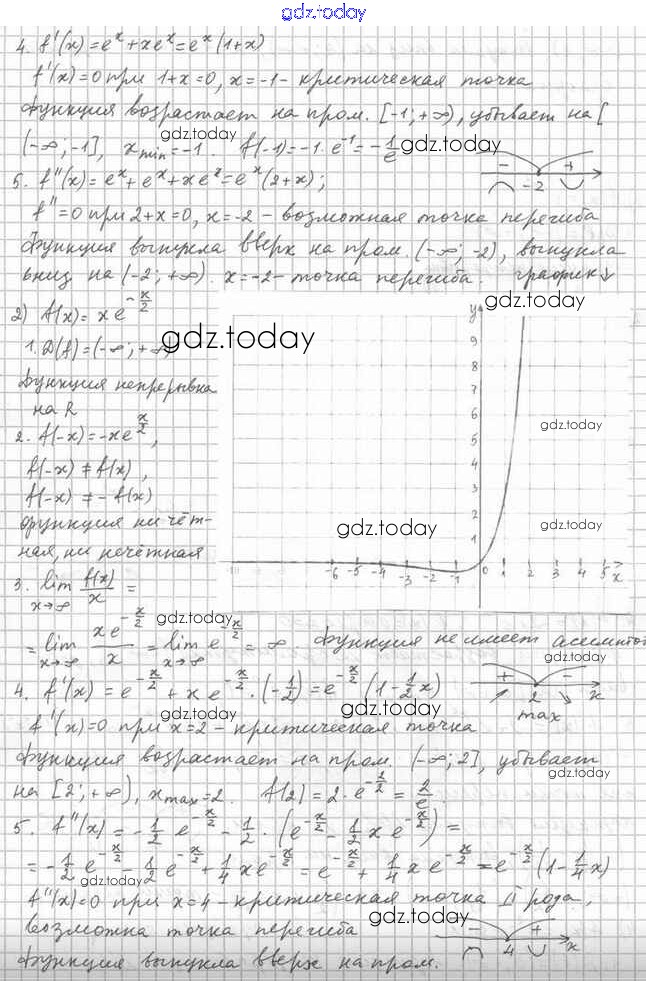 gdz.today
4. f'(x) = eˣ + xeˣ = eˣ(1+x)
f'(x) = 0 при 1+x = 0, x = -1 - критическая точка
Функция возрастает на пром. [-1; +∞), убывает на [
gdz.today
(-∞; -1], x min = -1. f(-1) = -1·e⁻¹ = -1/e
gdz.today
- +
-2
5. f''(x) = eˣ + eˣ + xeˣ = eˣ(2+x);
f'' = 0 при 2+x = 0, x = -2 - возможная точка перегиба
Функция выпукла вверх на пром. (-∞; -2), выпукла
вниз на (-2; +∞). x = -2 - точка перегиба. график ↓
gdz.today
2) f(x) = x e^(-x/2)
gdz.today
1. D(f) = (-∞; +∞)
Функция непрерывна
на R
2. f(-x) = -xe^(x/2),
f(-x) ≠ f(x),
f(-x) ≠ -f(x)
функция ни чёт-
ная, ни нечётная
y
9
8
7
6
5
4
3
2
1
-6 -5 -4 -3 -2 -1 0 1 2 3 4 5 x
gdz.today
gdz.today
gdz.today
3. lim x→∞ f(x)/x =
= lim x→∞ xe^(-x/2)/x = lim x→∞ e^(-x/2) = ∞. Функция не имеет асимптот
gdz.today
gdz.today
4. f'(x) = e^(-x/2) + x e^(-x/2)·(-1/2) = e^(-x/2)(1 - 1/2 x)
+ -
2 x
max
gdz.today
gdz.today
f'(x) = 0 при x = 2 - критическая точка
Функция возрастает на пром. (-∞; 2], убывает
gdz.today
на [2; +∞), x max = 2. f(2) = 2·e^(-2/2) = 2/e.
5. f''(x) = -1/2 e^(-x/2) - 1/2·(e^(-x/2) - 1/2 x e^(-x/2)) =
= -1/2 e^(-x/2) - 1/2 e^(-x/2) + 1/4 xe^(-x/2) = e^(-x/2) + 1/4 x e^(-x/2) = e^(-x/2)(1 - 1/4 x)
gdz.today
f''(x) = 0 при x = 4 - критическая точка II рода,
gdz.today
возможна точка перегиба
- +
4 x
Функция выпукла вверх на пром.